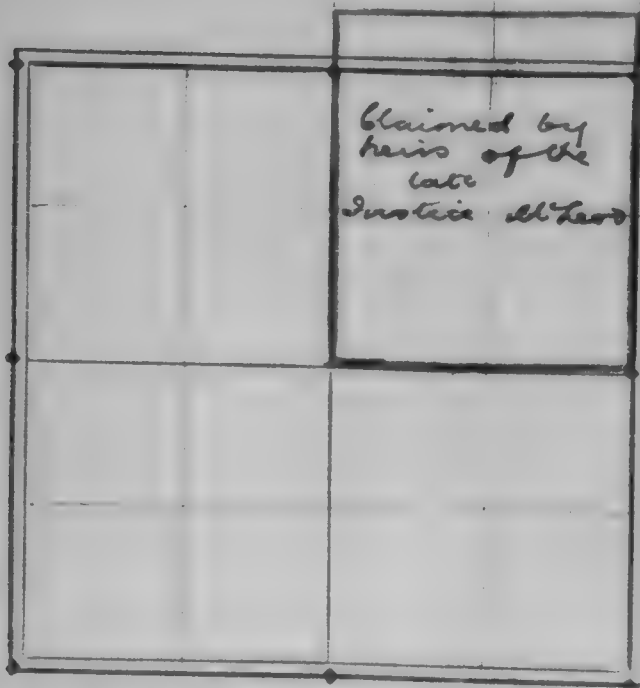 Claimed by
heirs of the
late
Justice McLeod